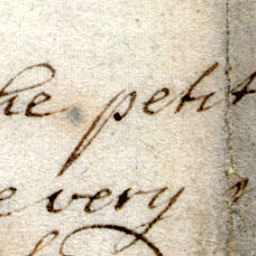 he petit
e very